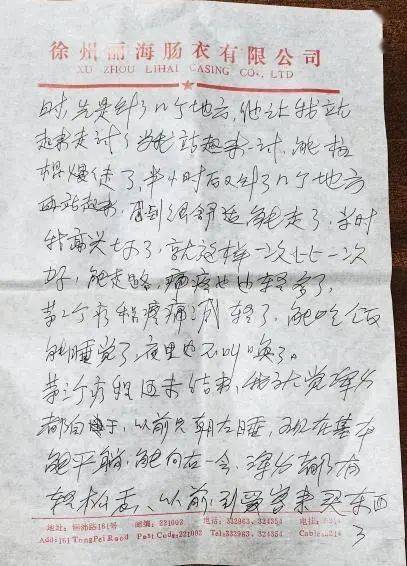 徐州丽海肠衣有限公司
XU ZHOU LIHAI CASING CO., LTD
时,先是针了几个地方,他让我站
起来走试了当我站起来一试,能
慢慢走了,半小时后又针了几个地方
再站起来,感到很舒适能走了,当时
我高兴坏了,就这样一次比一次
好,能走路,痛疼也轻多了,
第二个疗程疼痛减轻了,能吃饭
能睡觉了,夜里也不叫唤了。
第三个疗程还未结束,我就觉得身
以前只朝左睡,现在基本
能平躺,能向右一会,浑身都有
轻松
以前,到 家来买东西
地址:铜沛路161号 邮编:221002 电话:332963、324354
Add:161 TongPei Road Post Code:221002 Tel:332963、324354
3